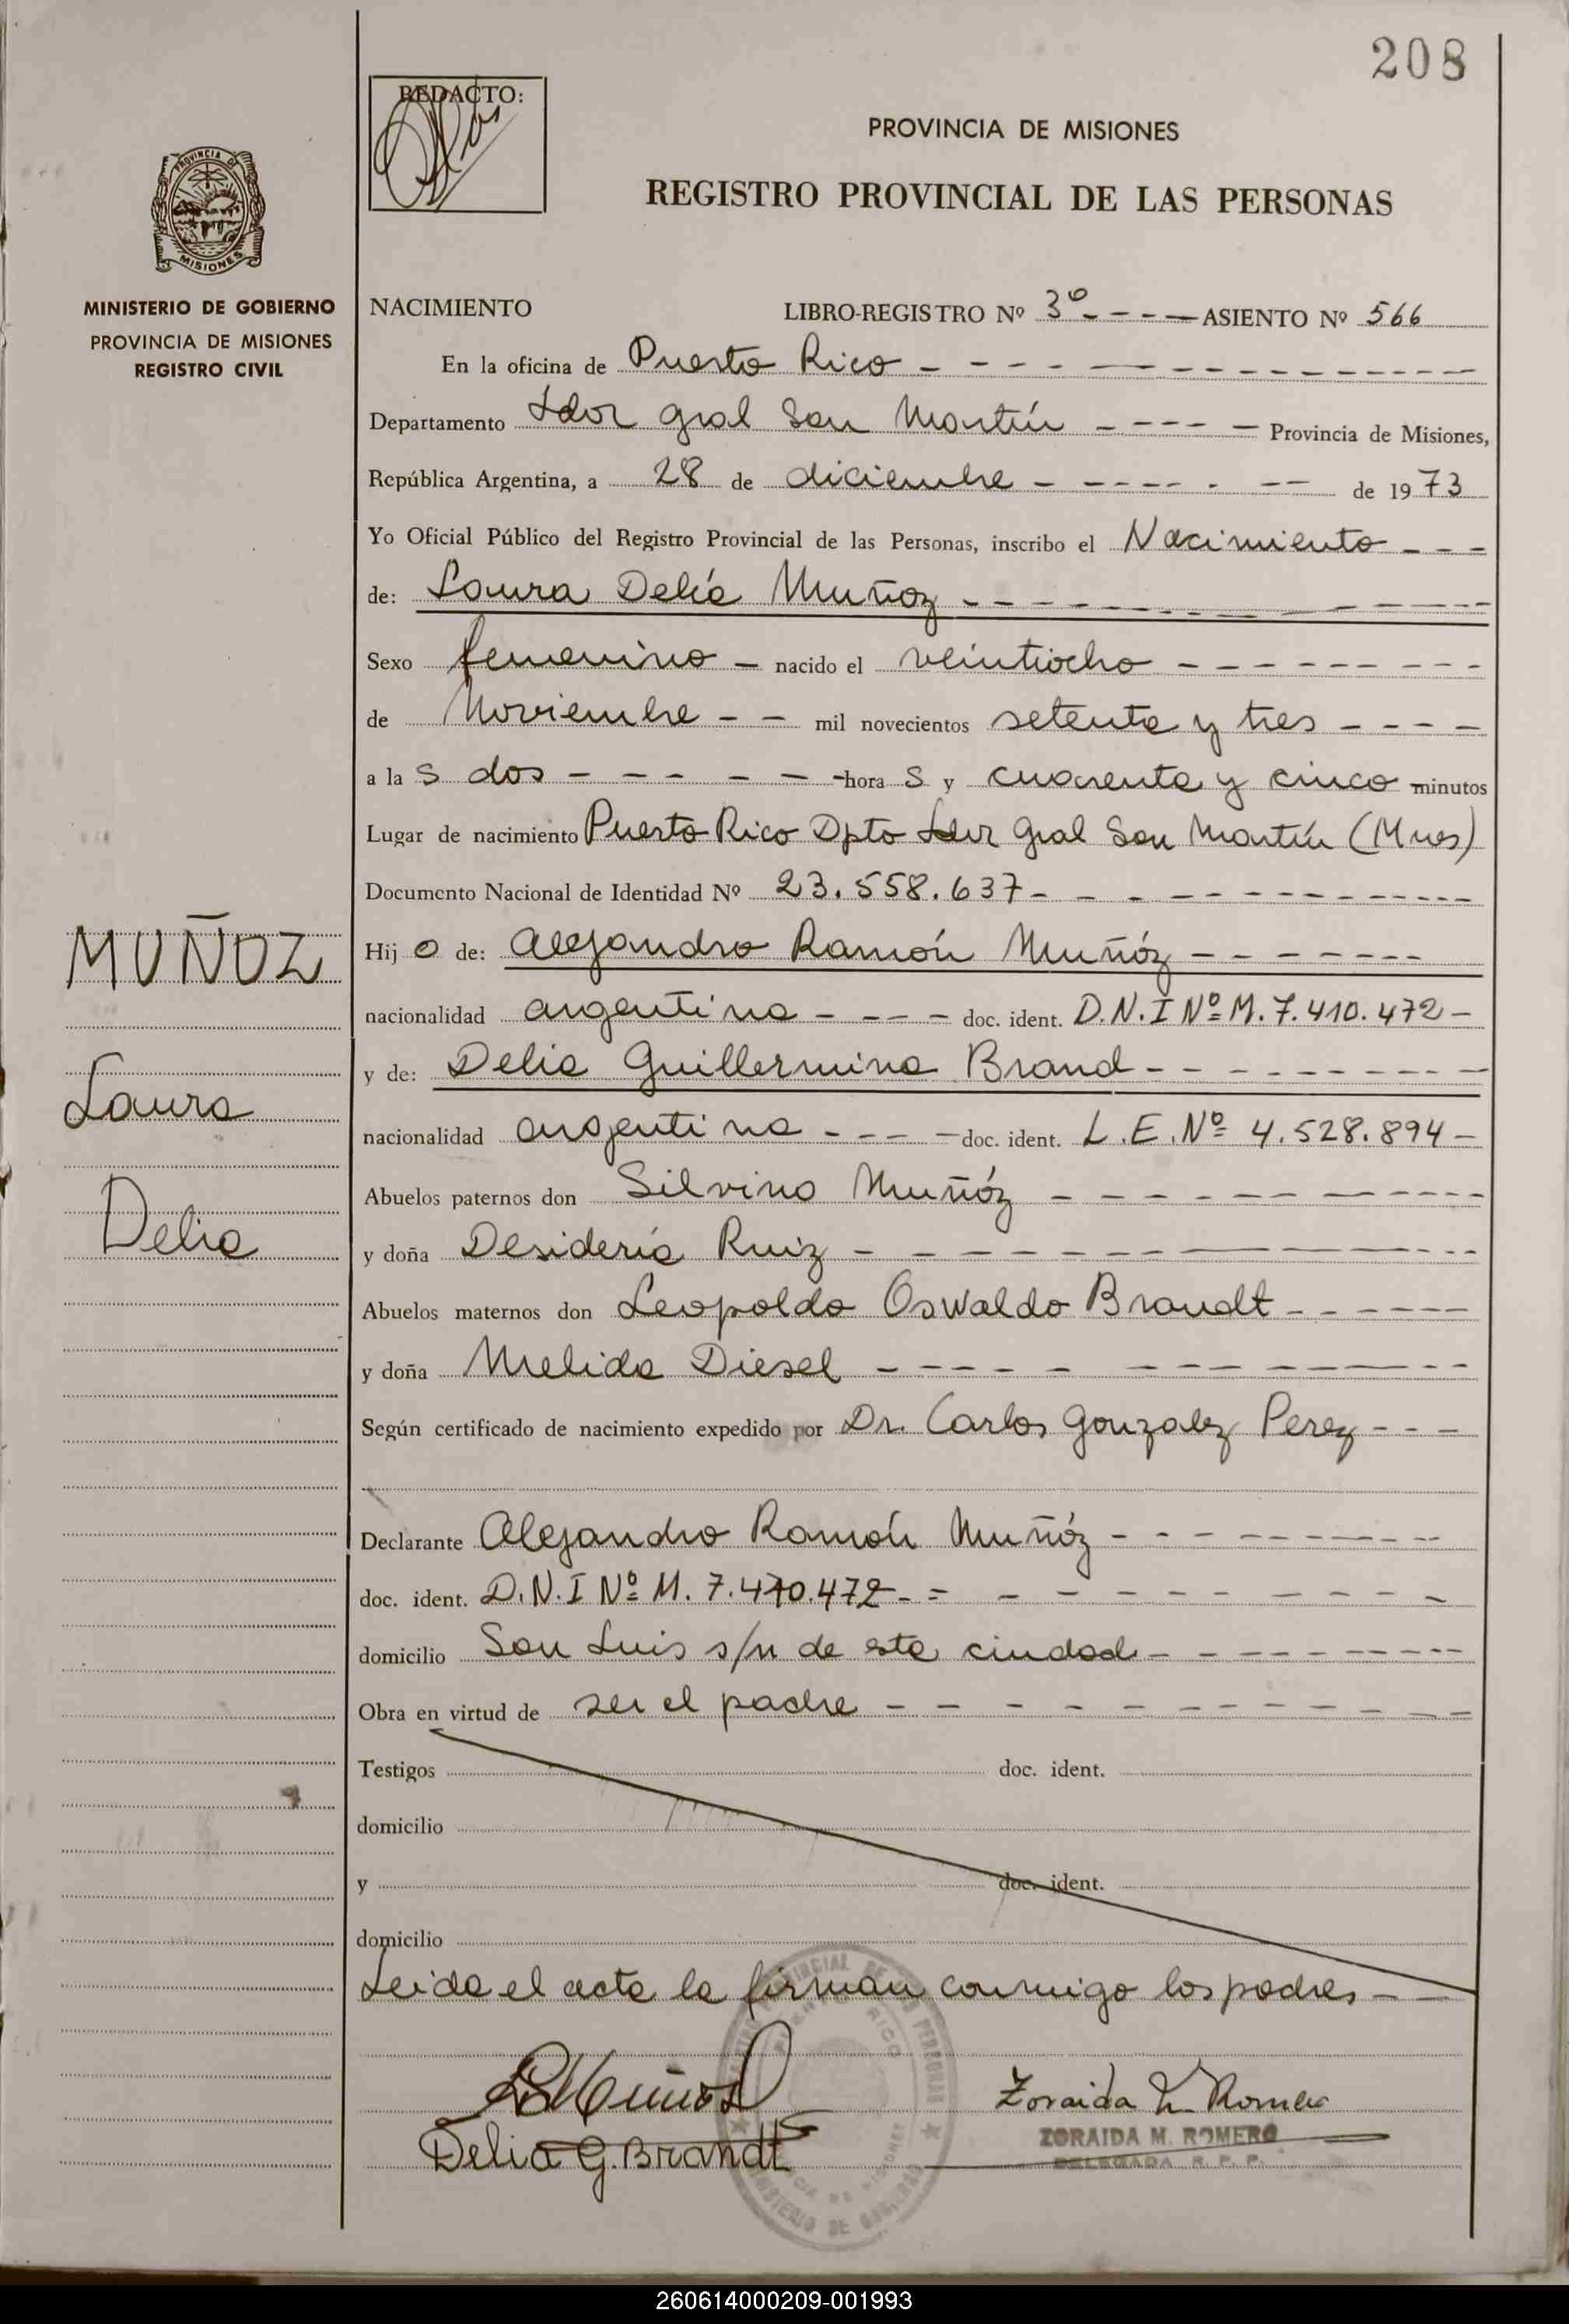 208
REDACTO:
PROVINCIA DE MISIONES
REGISTRO PROVINCIAL DE LAS PERSONAS
PROVINCIA DE
MISIONES
MINISTERIO DE GOBIERNO
PROVINCIA DE MISIONES
REGISTRO CIVIL
NACIMIENTO LIBRO-REGISTRO Nº 3º - - - - ASIENTO Nº 566
En la oficina de Puerto Rico
Departamento Ldor Gral San Martín Provincia de Misiones,
República Argentina, a 28 de diciembre de 1973
Yo Oficial Público del Registro Provincial de las Personas, inscribo el Nacimiento
de: Laura Delia Muñoz
Sexo femenino nacido el veintiocho
de Noviembre mil novecientos setenta y tres
a la s dos hora s y cuarenta y cinco minutos
Lugar de nacimiento Puerto Rico Dpto Ldor Gral San Martín (Mnes)
Documento Nacional de Identidad Nº 23.558.637
MUÑOZ
Hij o de: Alejandro Ramón Muñóz
nacionalidad argentina doc. ident. D.N.I Nº M. 7.410.472
y de: Delia Guillermina Brand
Laura
nacionalidad argentina doc. ident. L.E. Nº 4.528.894
Abuelos paternos don Silvino Muñóz
Delia
y doña Desideria Ruiz
Abuelos maternos don Leopoldo Oswaldo Brandt
y doña Melida Diesel
Según certificado de nacimiento expedido por Dr. Carlos Gonzalez Perez
Declarante Alejandro Ramón Muñóz
doc. ident. D.N.I Nº M. 7.470.472
domicilio San Luis s/n de esta ciudad
Obra en virtud de ser el padre
Testigos doc. ident.
domicilio
y doc. ident.
domicilio
Leida el acta la firman conmigo los padres
Muñoz
Zoraida M Romero
Delia G. Brandt
ZORAIDA M. ROMERO
DELEGADA R. P. P.
260614000209-001993